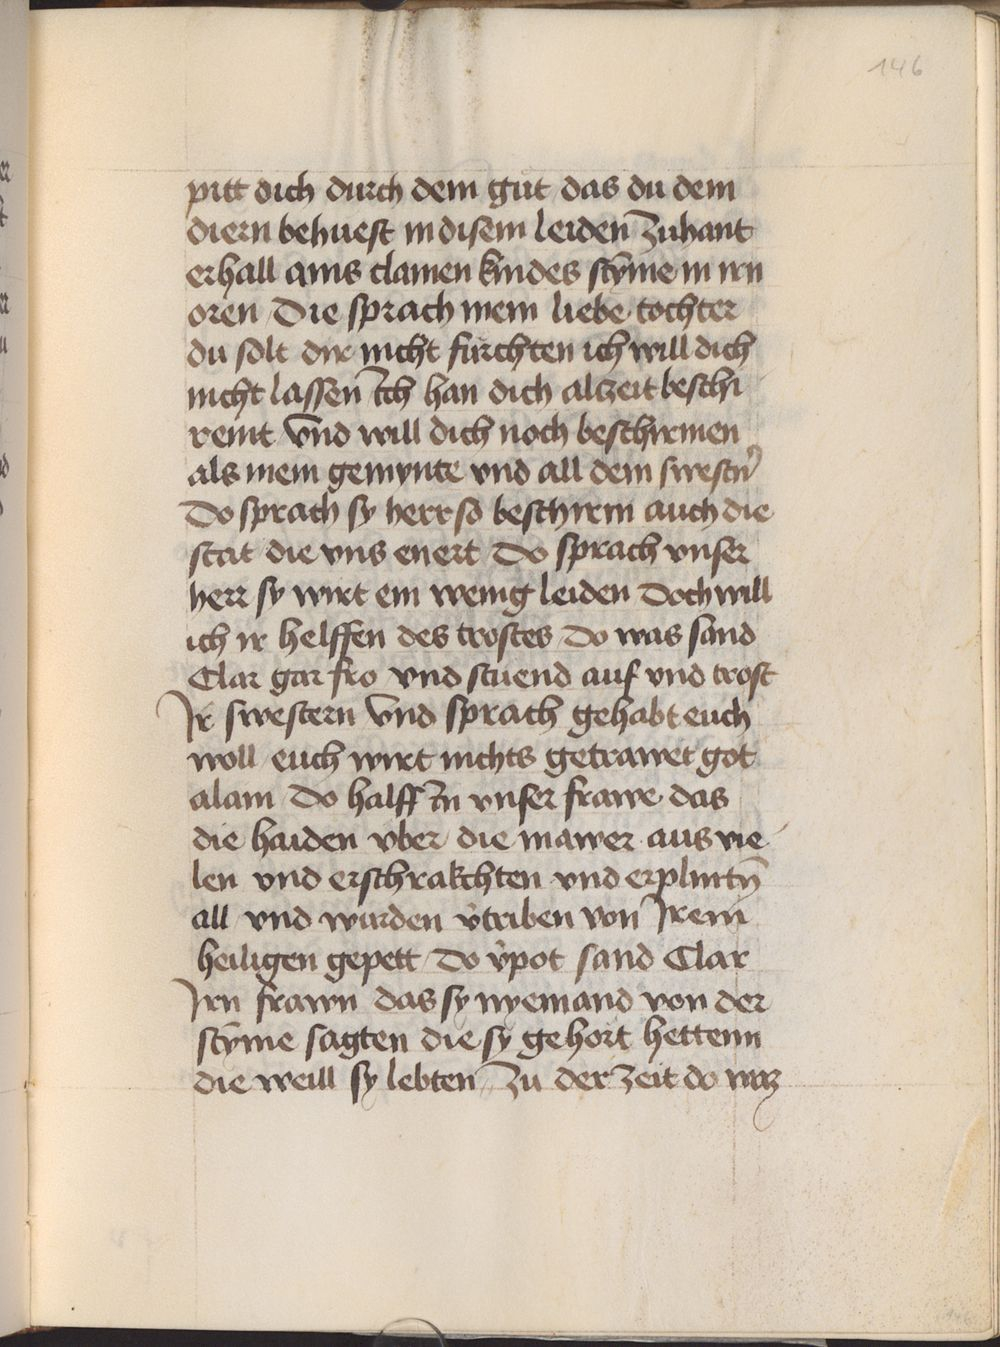 146
pitt dich durch dein gut das du dein
diern behuest in disem leiden Zuhant
erhall ains clainen kindes stȳme in irn
oren Die sprach mein liebe tochter
du solt dir nicht fürchten ich will dich
nicht lassen Ich han dich alzeit beschi
remt Vnd will dich noch beschirmen
als mein gemynte vnd all dein swestn̄
Do sprach sy herr so beschirm auch die
stat die vns enert Do sprach vnser
herr sy wirt ein wenig leiden Doch will
ich ir helffen des trostes Do was sand
Clar gar fro vnd stuend auf vnd trost
Ir swestern Vnd sprach gehabt euch
woll euch wirt nichts getrawet got
alain Do halff In vnser frawe das
die haiden vber die mawer aus vie
len vnd erschrakchten vnd erplintn̄
all vnd wurden v̓triben von Irem
heiligen gepett Do v̓pot sand Clar
Irn frawn das sy nyemand von der
stȳme sagten die sy gehort hettenn
die weill sy lebten Zu der Zeit do waz